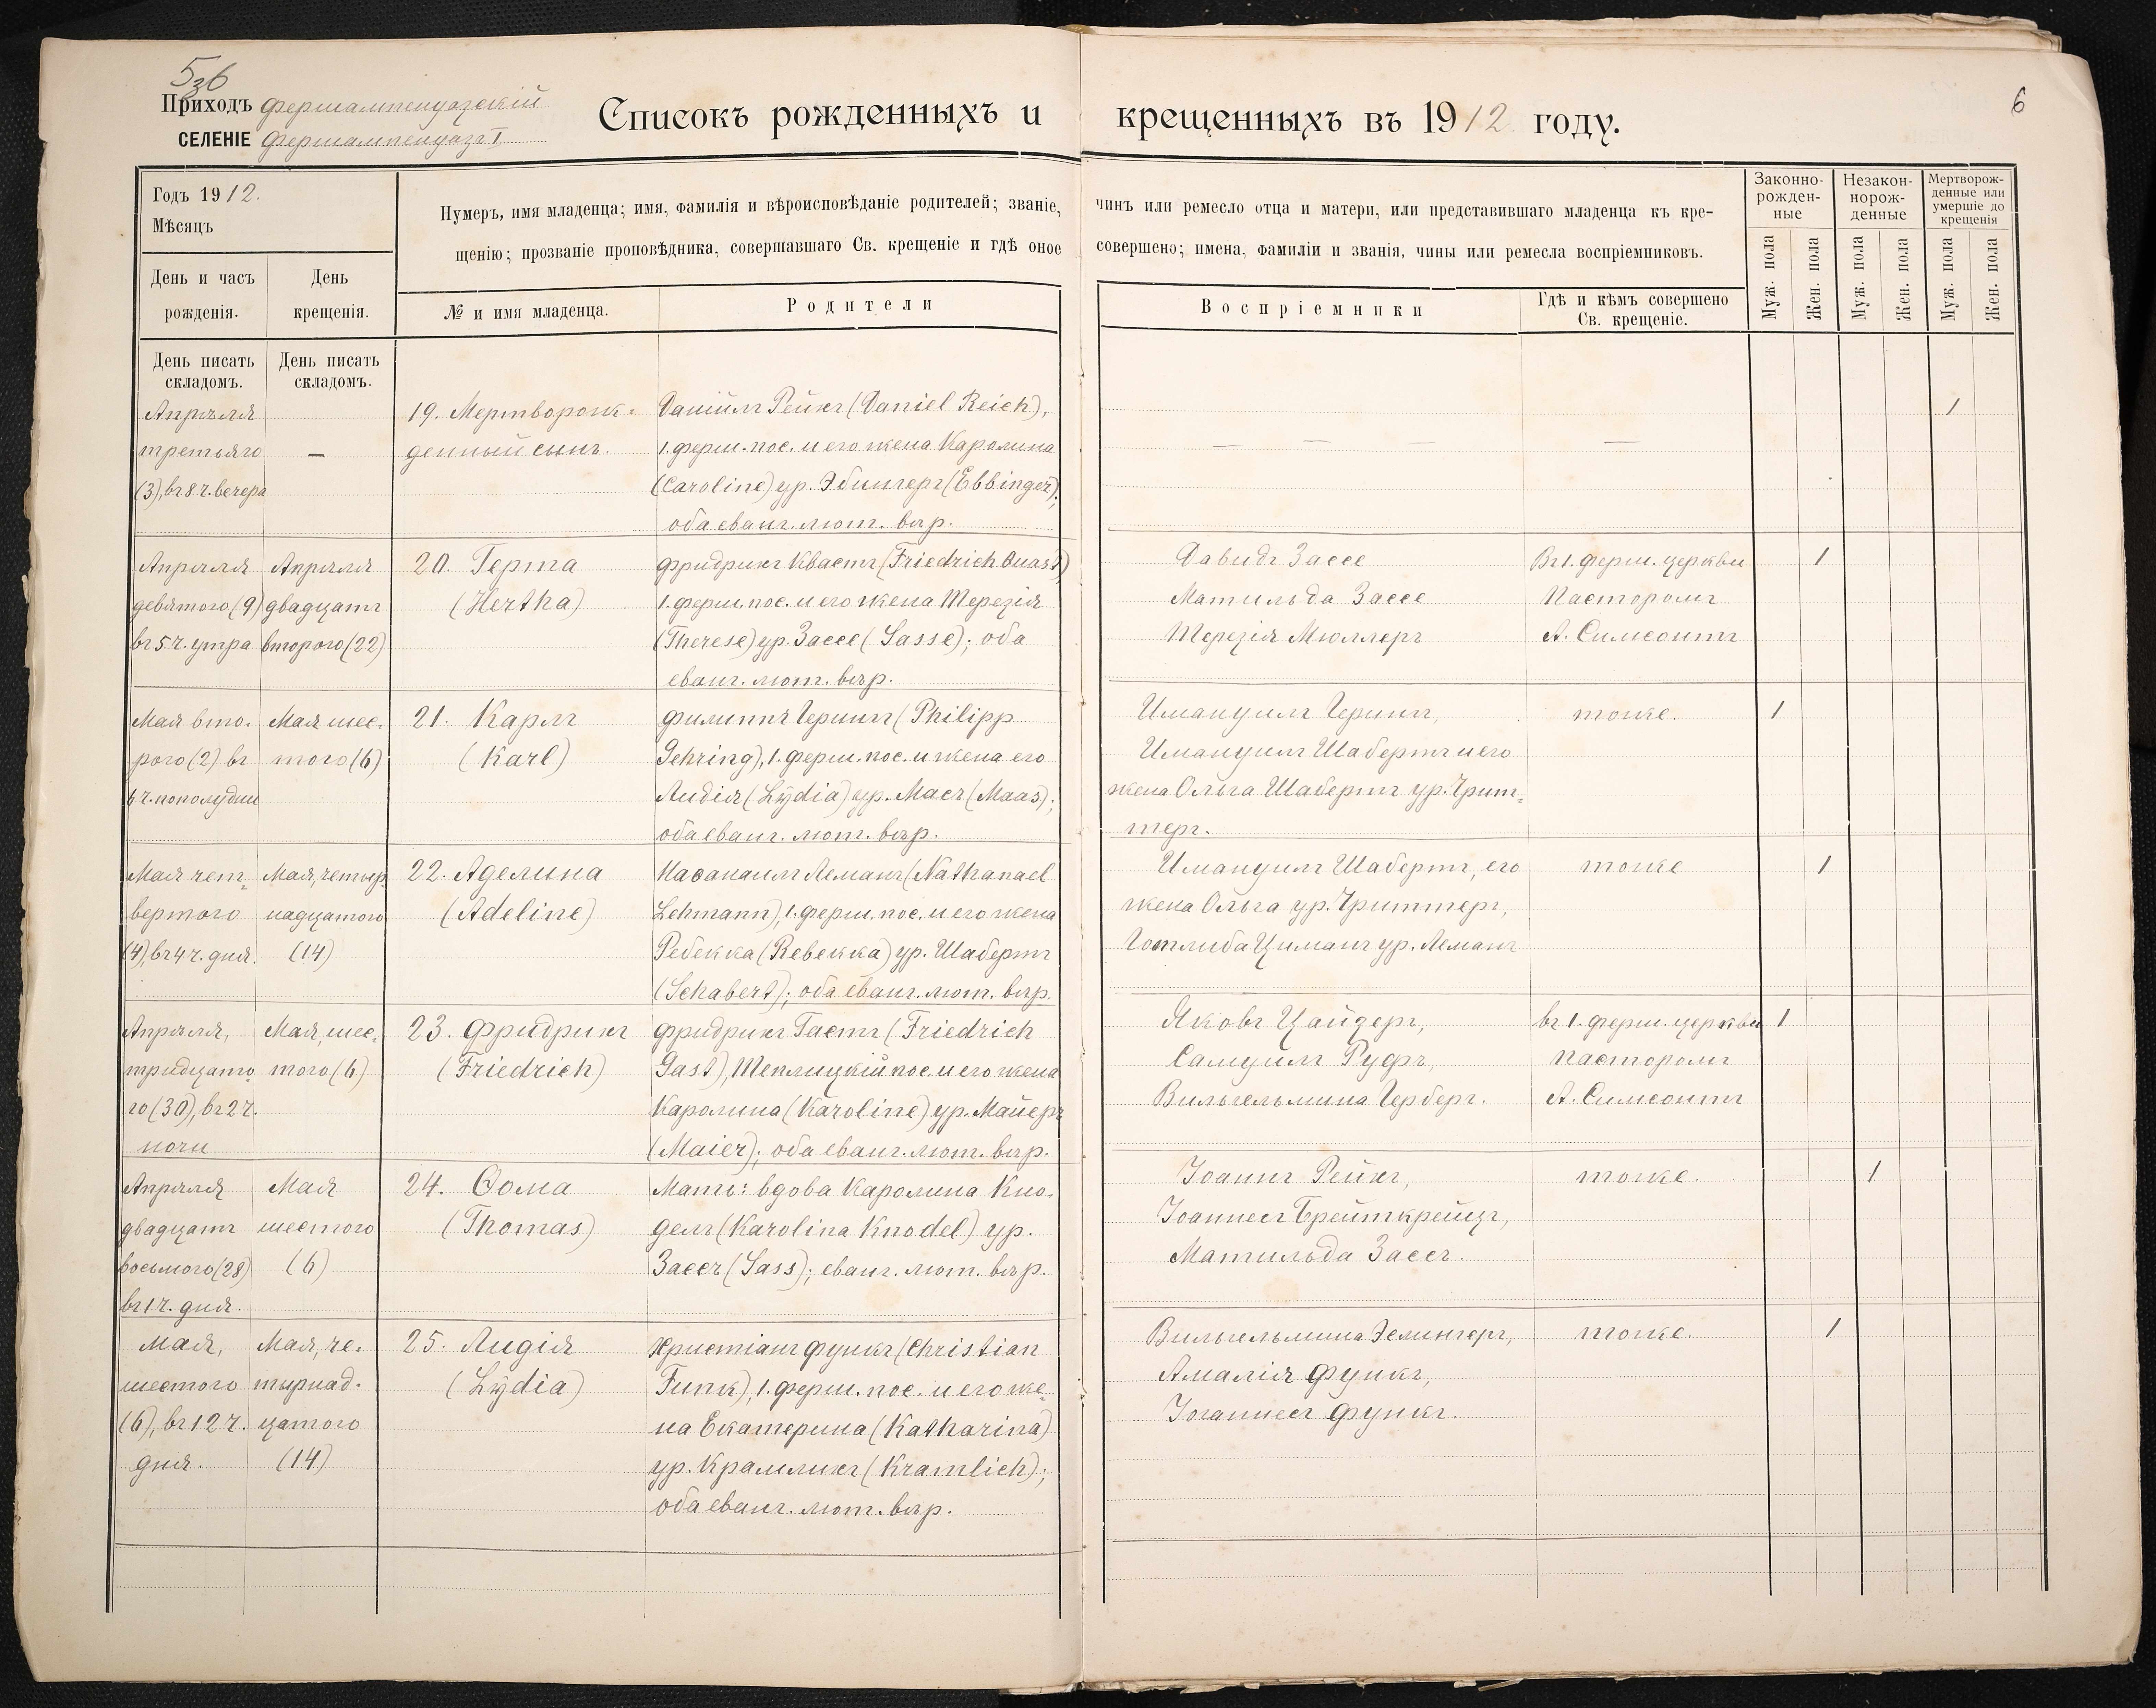 536
6
Приходъ Фершампенуазскій
СЕЛЕНІЕ Фершампенуазъ I
Списокъ рожденныхъ и крещенныхъ въ 1912 году.
Годъ 1912.
Мѣсяцъ
День и часъ
рожденія.
День
крещенія.
Нумеръ, имя младенца; имя, фамилія и вѣроисповѣданіе родителей; званіе, чинъ или ремесло отца и матери, или представившаго младенца къ кре-
щенію; прозваніе проповѣдника, совершавшаго Св. крещеніе и гдѣ оное совершено; имена, фамиліи и званія, чины или ремесла воспріемниковъ.
№ и имя младенца.
Родители
Воспріемники
Гдѣ и кѣмъ совершено
Св. крещеніе.
Законно-
рожден-
ные
Незакон-
норож-
денные
Мертворож-
денные или
умершіе до
крещенія
Муж. пола
Жен. пола
Муж. пола
Жен. пола
Муж. пола
Жен. пола
День писать
складомъ.
День писать
складомъ.
Апрѣля
третьяго
(3), въ 8 ч. вечера
—
19. Мертворож-
денный сынъ.
Даніилъ Рейхъ (Daniel Reich),
1. ферш. пос. и его жена Каролина
(Caroline) ур. Эбингеръ (Ebbinger);
оба еванг. лют. вѣр.
— — — —
1
Апрѣля
девятого (9)
въ 5 ч. утра
Апрѣля
двадцать
второго (22)
20. Герта
(Hertha)
Фридрихъ Квастъ (Friedrich Quast)
1. ферш. пос. и его жена Терезія
(Therese) ур. Зассе (Sasse); оба
еванг. лют. вѣр.
Давидъ Зассе
Матильда Зассе
Терезія Мюллеръ
Въ 1. ферш. церкви
Пасторомъ
А. Симсонъ
1
Мая вто-
рого (2) въ
6 ч. пополудни
Мая шес-
того (6)
21. Карлъ
(Karl)
Филиппъ Герингъ (Philipp
Gehring), 1. ферш. пос. и жена его
Лидія (Lÿdia) ур. Маасъ (Maas);
оба еванг. лют. вѣр.
Имануилъ Герингъ,
Имануилъ Шабертъ и его
жена Ольга Шабертъ ур. Грит-
теръ.
тоже.
1
Мая чет-
вертого
(4), въ 4 ч. дня.
Мая, четыр-
надцатого
(14)
22. Аделина
(Adeline)
Насанаилъ Леманъ (Nathanael
Lehmann), 1. ферш. пос. и его жена
Ребекка (Rebekka) ур. Шабертъ
(Schabert); оба еванг. лют. вѣр.
Имануилъ Шабертъ, его
жена Ольга ур. Гриттеръ,
Готлиба Циманъ ур. Леманъ
тоже
1
Апрѣля,
тридцато-
го (30), въ 2 ч.
ночи
Мая, шес-
того (6)
23. Фридрихъ
(Friedrich)
Фридрихъ Гастъ (Friedrich
Gast), Теплицкій пос. и его жена
Каролина (Karoline) ур. Майеръ
(Maier); оба еванг. лют. вѣр.
Яковъ Цайзеръ,
Самуилъ Руфъ,
Вильгельмина Герберъ.
въ 1. ферш. церкви
Пасторомъ
А. Симсонъ
1
Апрѣля
двадцать
восьмого (28)
въ 1 ч. дня.
Мая
шестого
(6)
24. Ѳома
(Thomas)
Мать: вдова Каролина Кно-
дель (Karolina Knodel) ур.
Зассъ (Sass); еванг. лют. вѣр.
Іоаннъ Рейхъ,
Іоаннесъ Брейткрейцъ,
Матильда Зассъ.
тоже.
1
Мая,
шестого
(6), въ 12 ч.
дня.
Мая, че-
тырнад-
цатого
(14)
25. Лидія
(Lÿdia)
Христіанъ Функъ (Christian
Funk), 1. ферш. пос. и его же-
на Екатерина (Katharina)
ур. Крамлихъ (Kramlich);
оба еванг. лют. вѣр.
Вильгельмина Зелингеръ,
Амалія Функъ,
Іоганнесъ Функъ.
тоже.
1